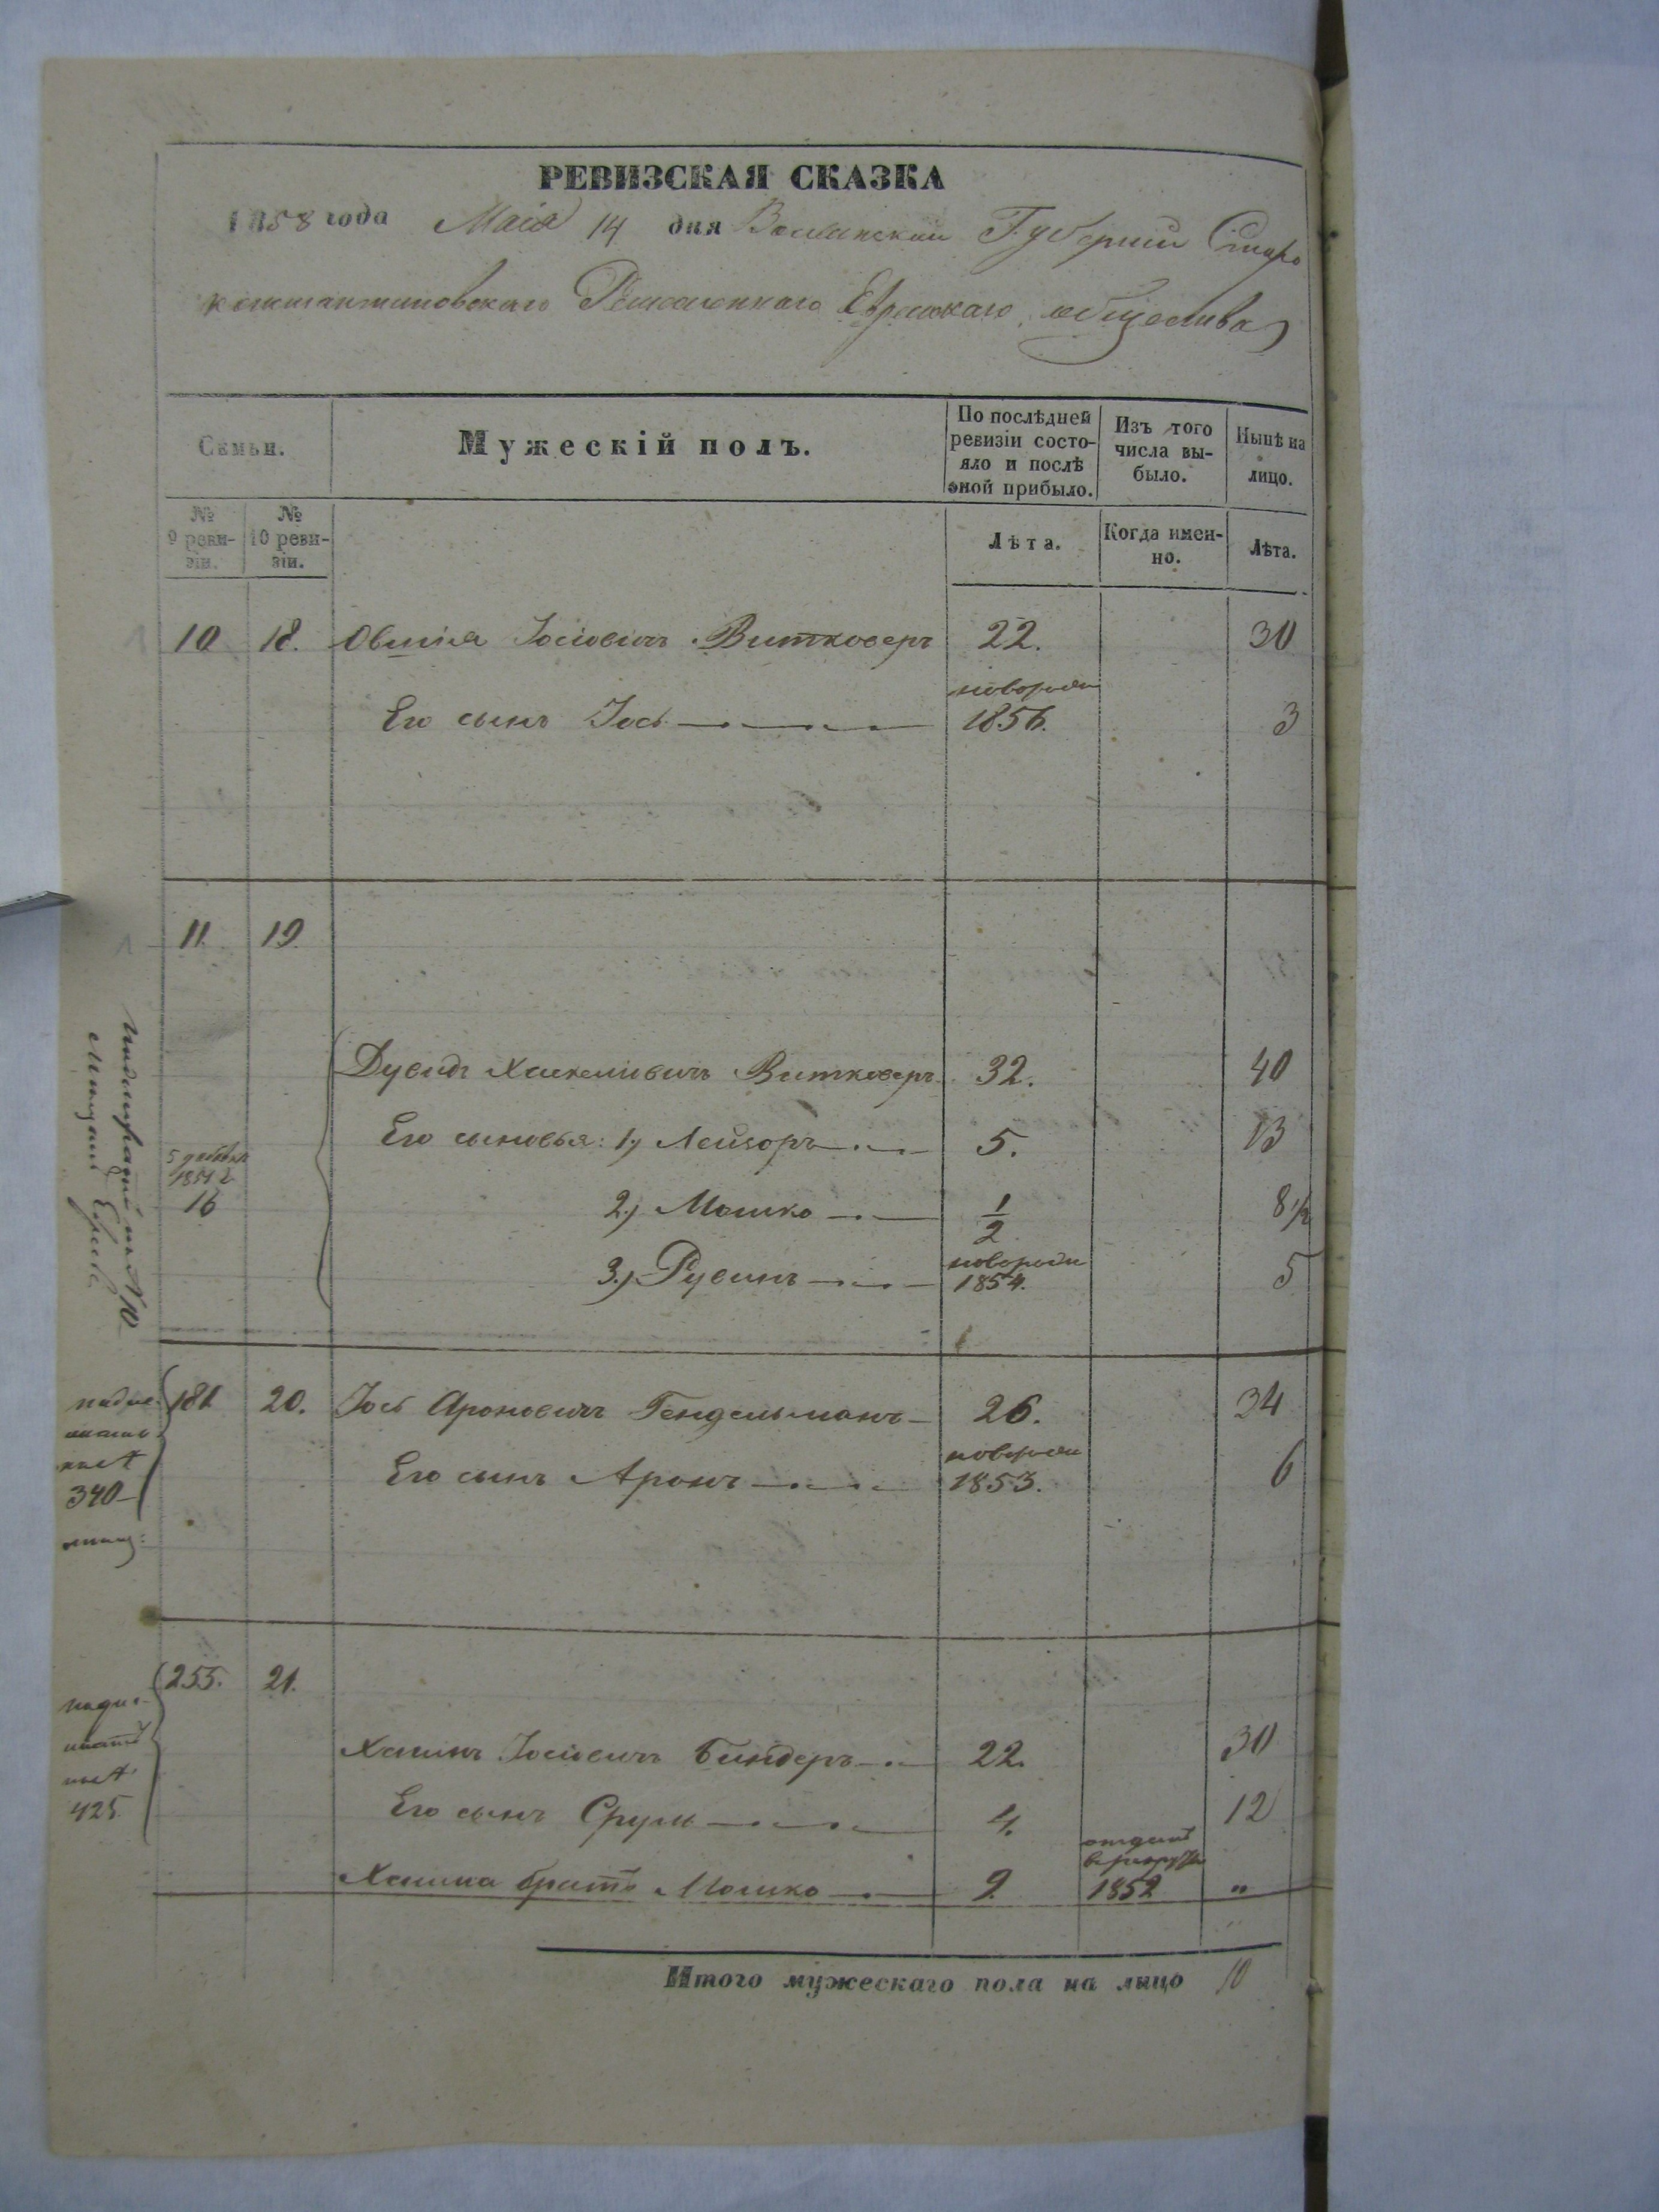 РЕВИЗСКАЯ СКАЗКА
1858 года Маія 14 дня Волынской Губерніи Старо
константиновскаго Ремесленнаго Еврейскаго общества
Семьи.
Мужескій полъ.
По послѣдней ревизіи состо-
яло и послѣ
оной прибыло.
Изъ того
числа вы-
было.
Нынѣ на
лицо.
№
9 реви-
зіи.
№
10 реви-
зіи.
Лѣта.
Когда имен-
но.
Лѣта.
10 18. Овшія Іосіовичъ Витковеръ 22. 30
Его сынъ Іось новорожд 1856. 3
11. 19.
Дувидъ Хаскеліовичъ Витковеръ 32. 40
Его сыновья: 1, Лейзоръ 5. 13
5 декабря
1851 г
16
2, Мошко 1/2 8 1/2
3, Рувинъ новорожд 1854. 5
181 20. Іось Ароновичъ Гендельманъ 26. 34
340
Его сынъ Аронъ новорожд 1853. 6
255. 21.
425
Хаимъ Іосіовичъ Биндеръ 22. 30
Его сынъ Срумъ 4. 12
Хаима братъ Мошко 9. отданъ в рекруты 1852 "
Итого мужескаго пола на лицо 10